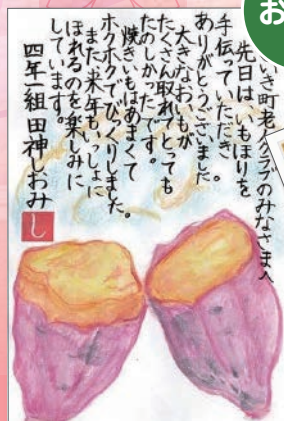 いき町老人クラブのみなさまへ
先日は、いもほりを
手伝っていただき
ありがとうございました。
大きなおいもが
たくさん取れてとっても
たのしかったです。
焼きいもはあまくて
ホクホクでびっくりしました。
また来年もいっしょに
ほれるのを楽しみに
しています。
四年一組田神しおみ
し
お